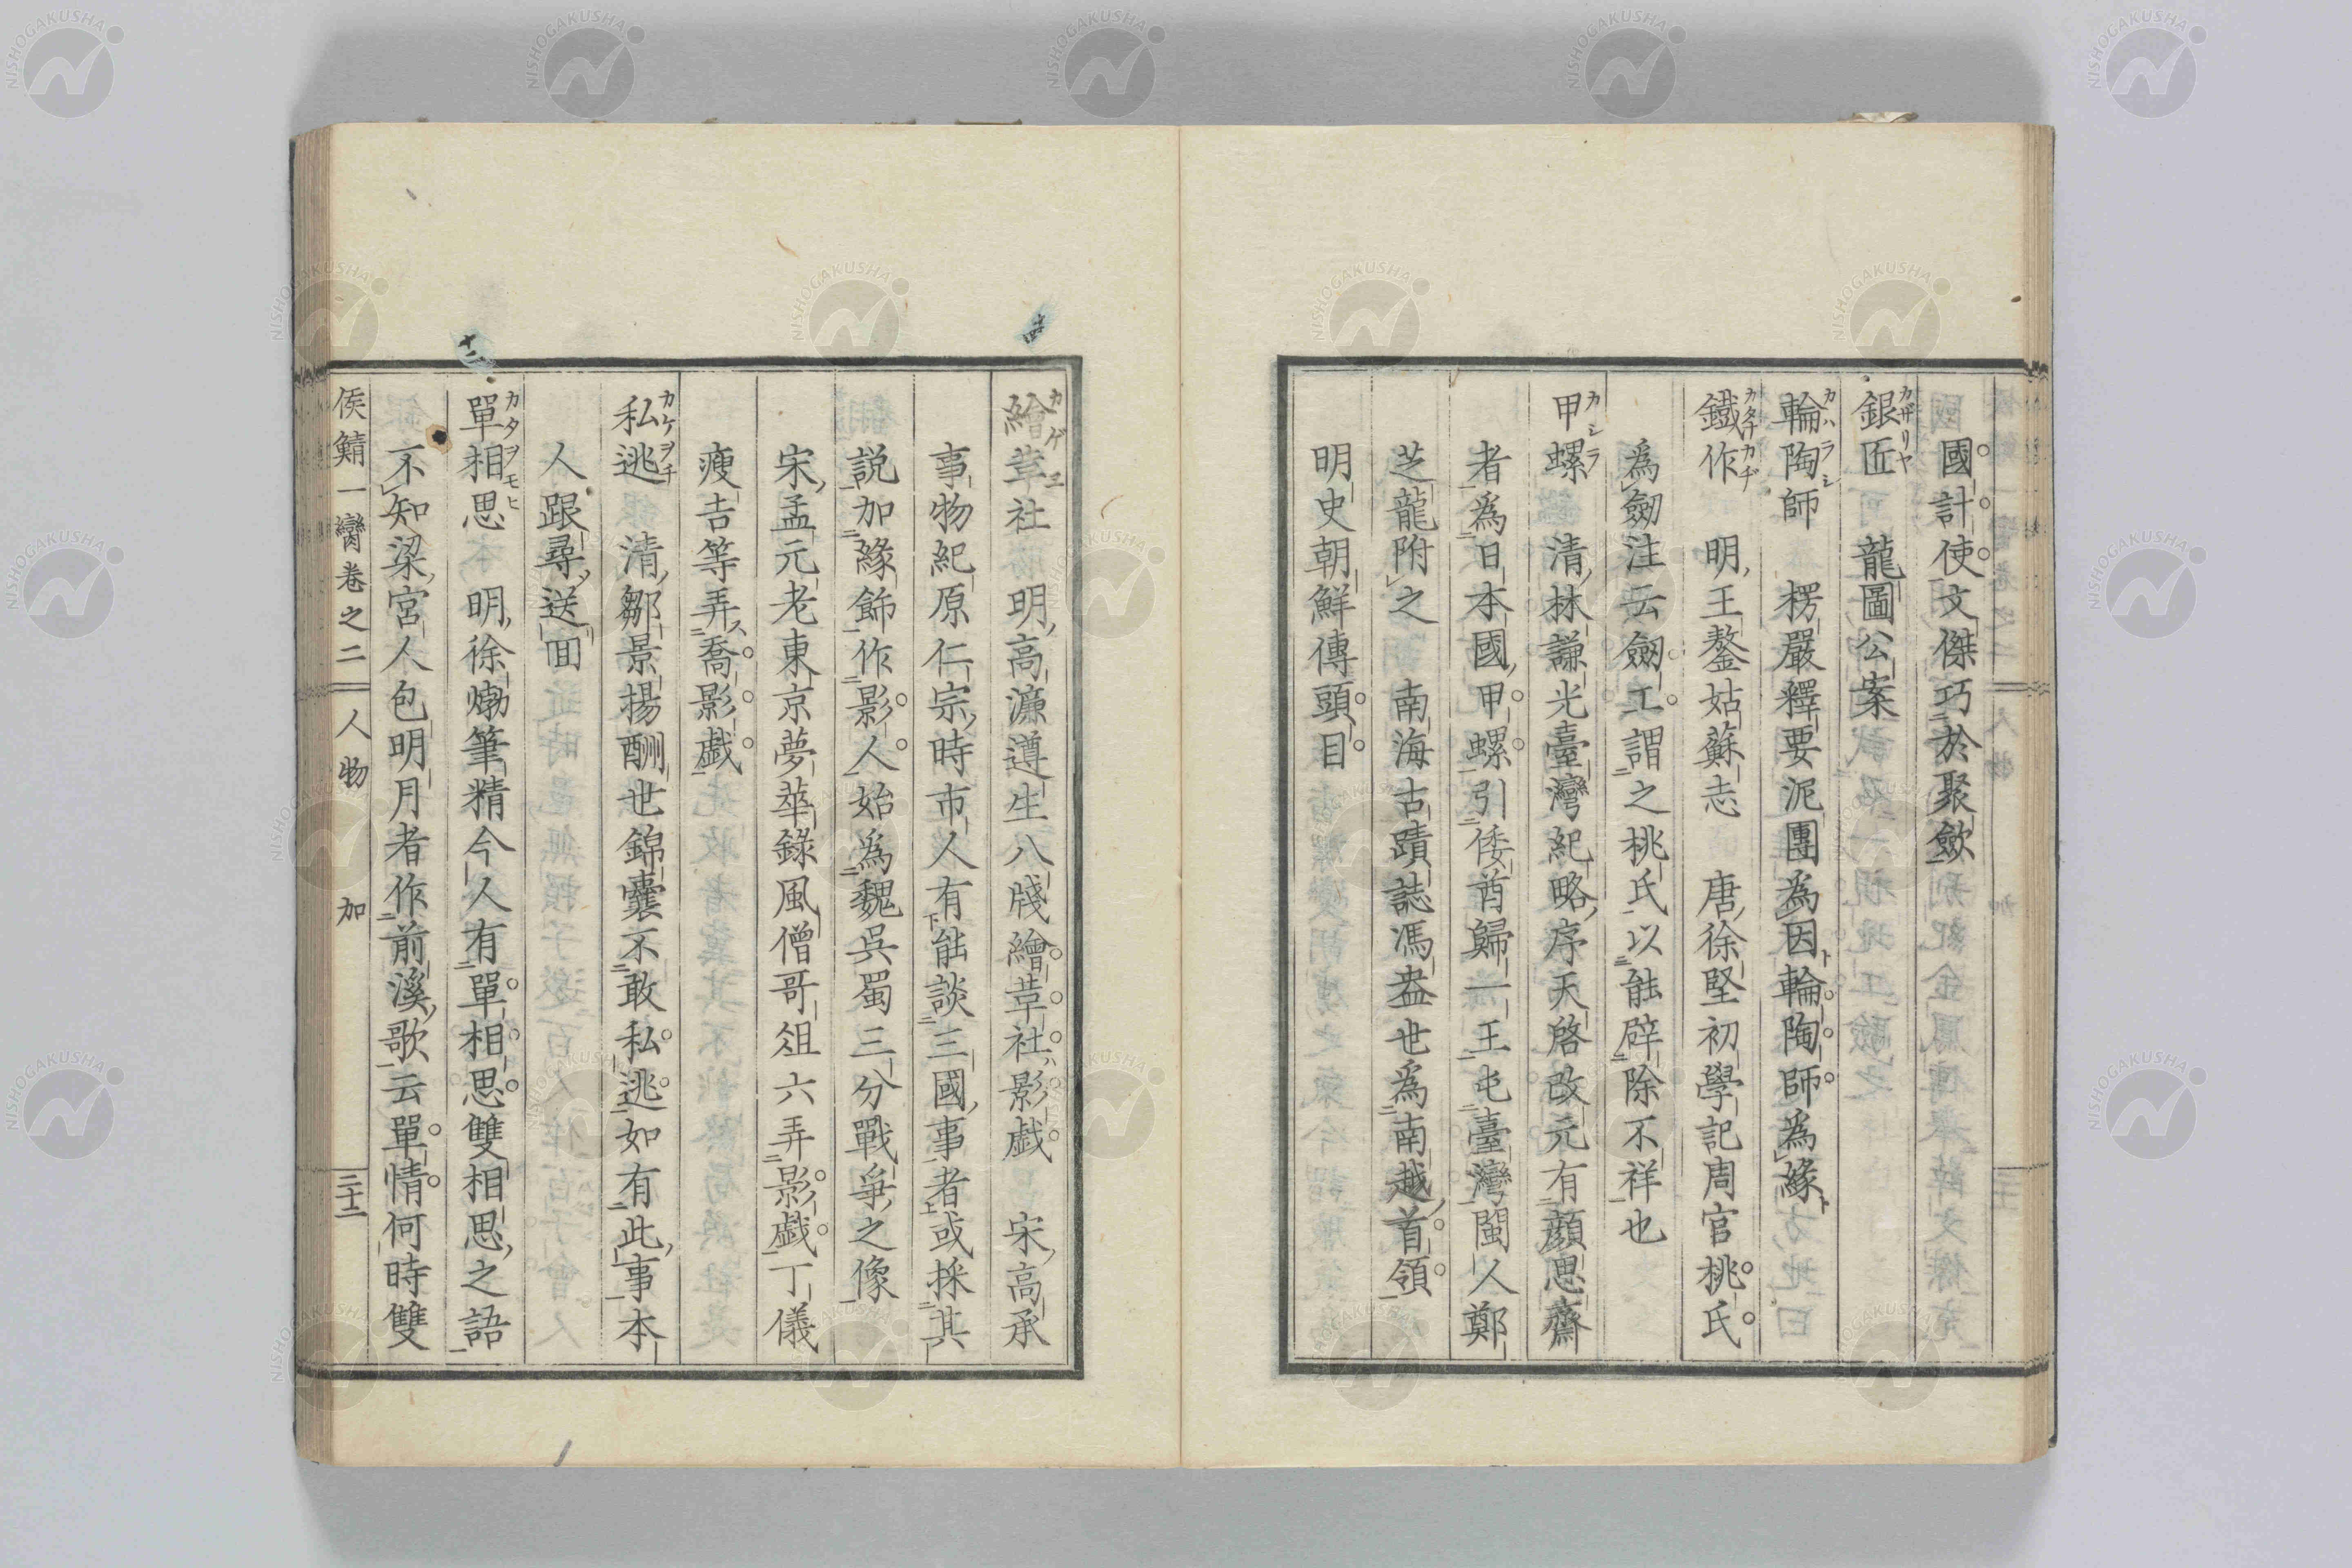 國計使文傑巧於聚斂
銀匠 龍圖公案
カザリヤ
輪陶師 楞嚴釋要泥團為因輪陶師為緣
カハラシ
鐵作 明王鏊姑蘇志 唐徐堅初學記周官桃氏
カタナカヂ
為劒注云劒工謂之桃氏以能辟除不祥也
甲螺 清林謙光臺灣紀略序天啓改元有顏思齋
カシラ
者為日本國甲螺引倭酋歸一王屯臺灣閩人鄭
芝龍附之 南海古蹟誌馮盎世為南越首領
明史朝鮮傳頭目
繪革社 明高濂遵生八牋繪革社影戲 宋高承
カゲエ
事物紀原仁宗時市人有能談三國事者或採其
説加緣飾作影人始為魏吳蜀三分戰爭之像
宋孟元老東京夢華錄風僧哥俎六弄影戲丁儀
瘦吉等弄喬影戲
私逃 清鄒景揚酬世錦囊不敢私逃如有此事本
カケヲチ
人跟尋送回
單相思 明徐𤊹筆精今人有單相思雙相思之語
カタヲモヒ
不知梁宮人包明月者作前溪歌云單情何時雙
侯鯖一臠卷之二 人物 加 三十二
十四
十二
NISHOGAKUSHA